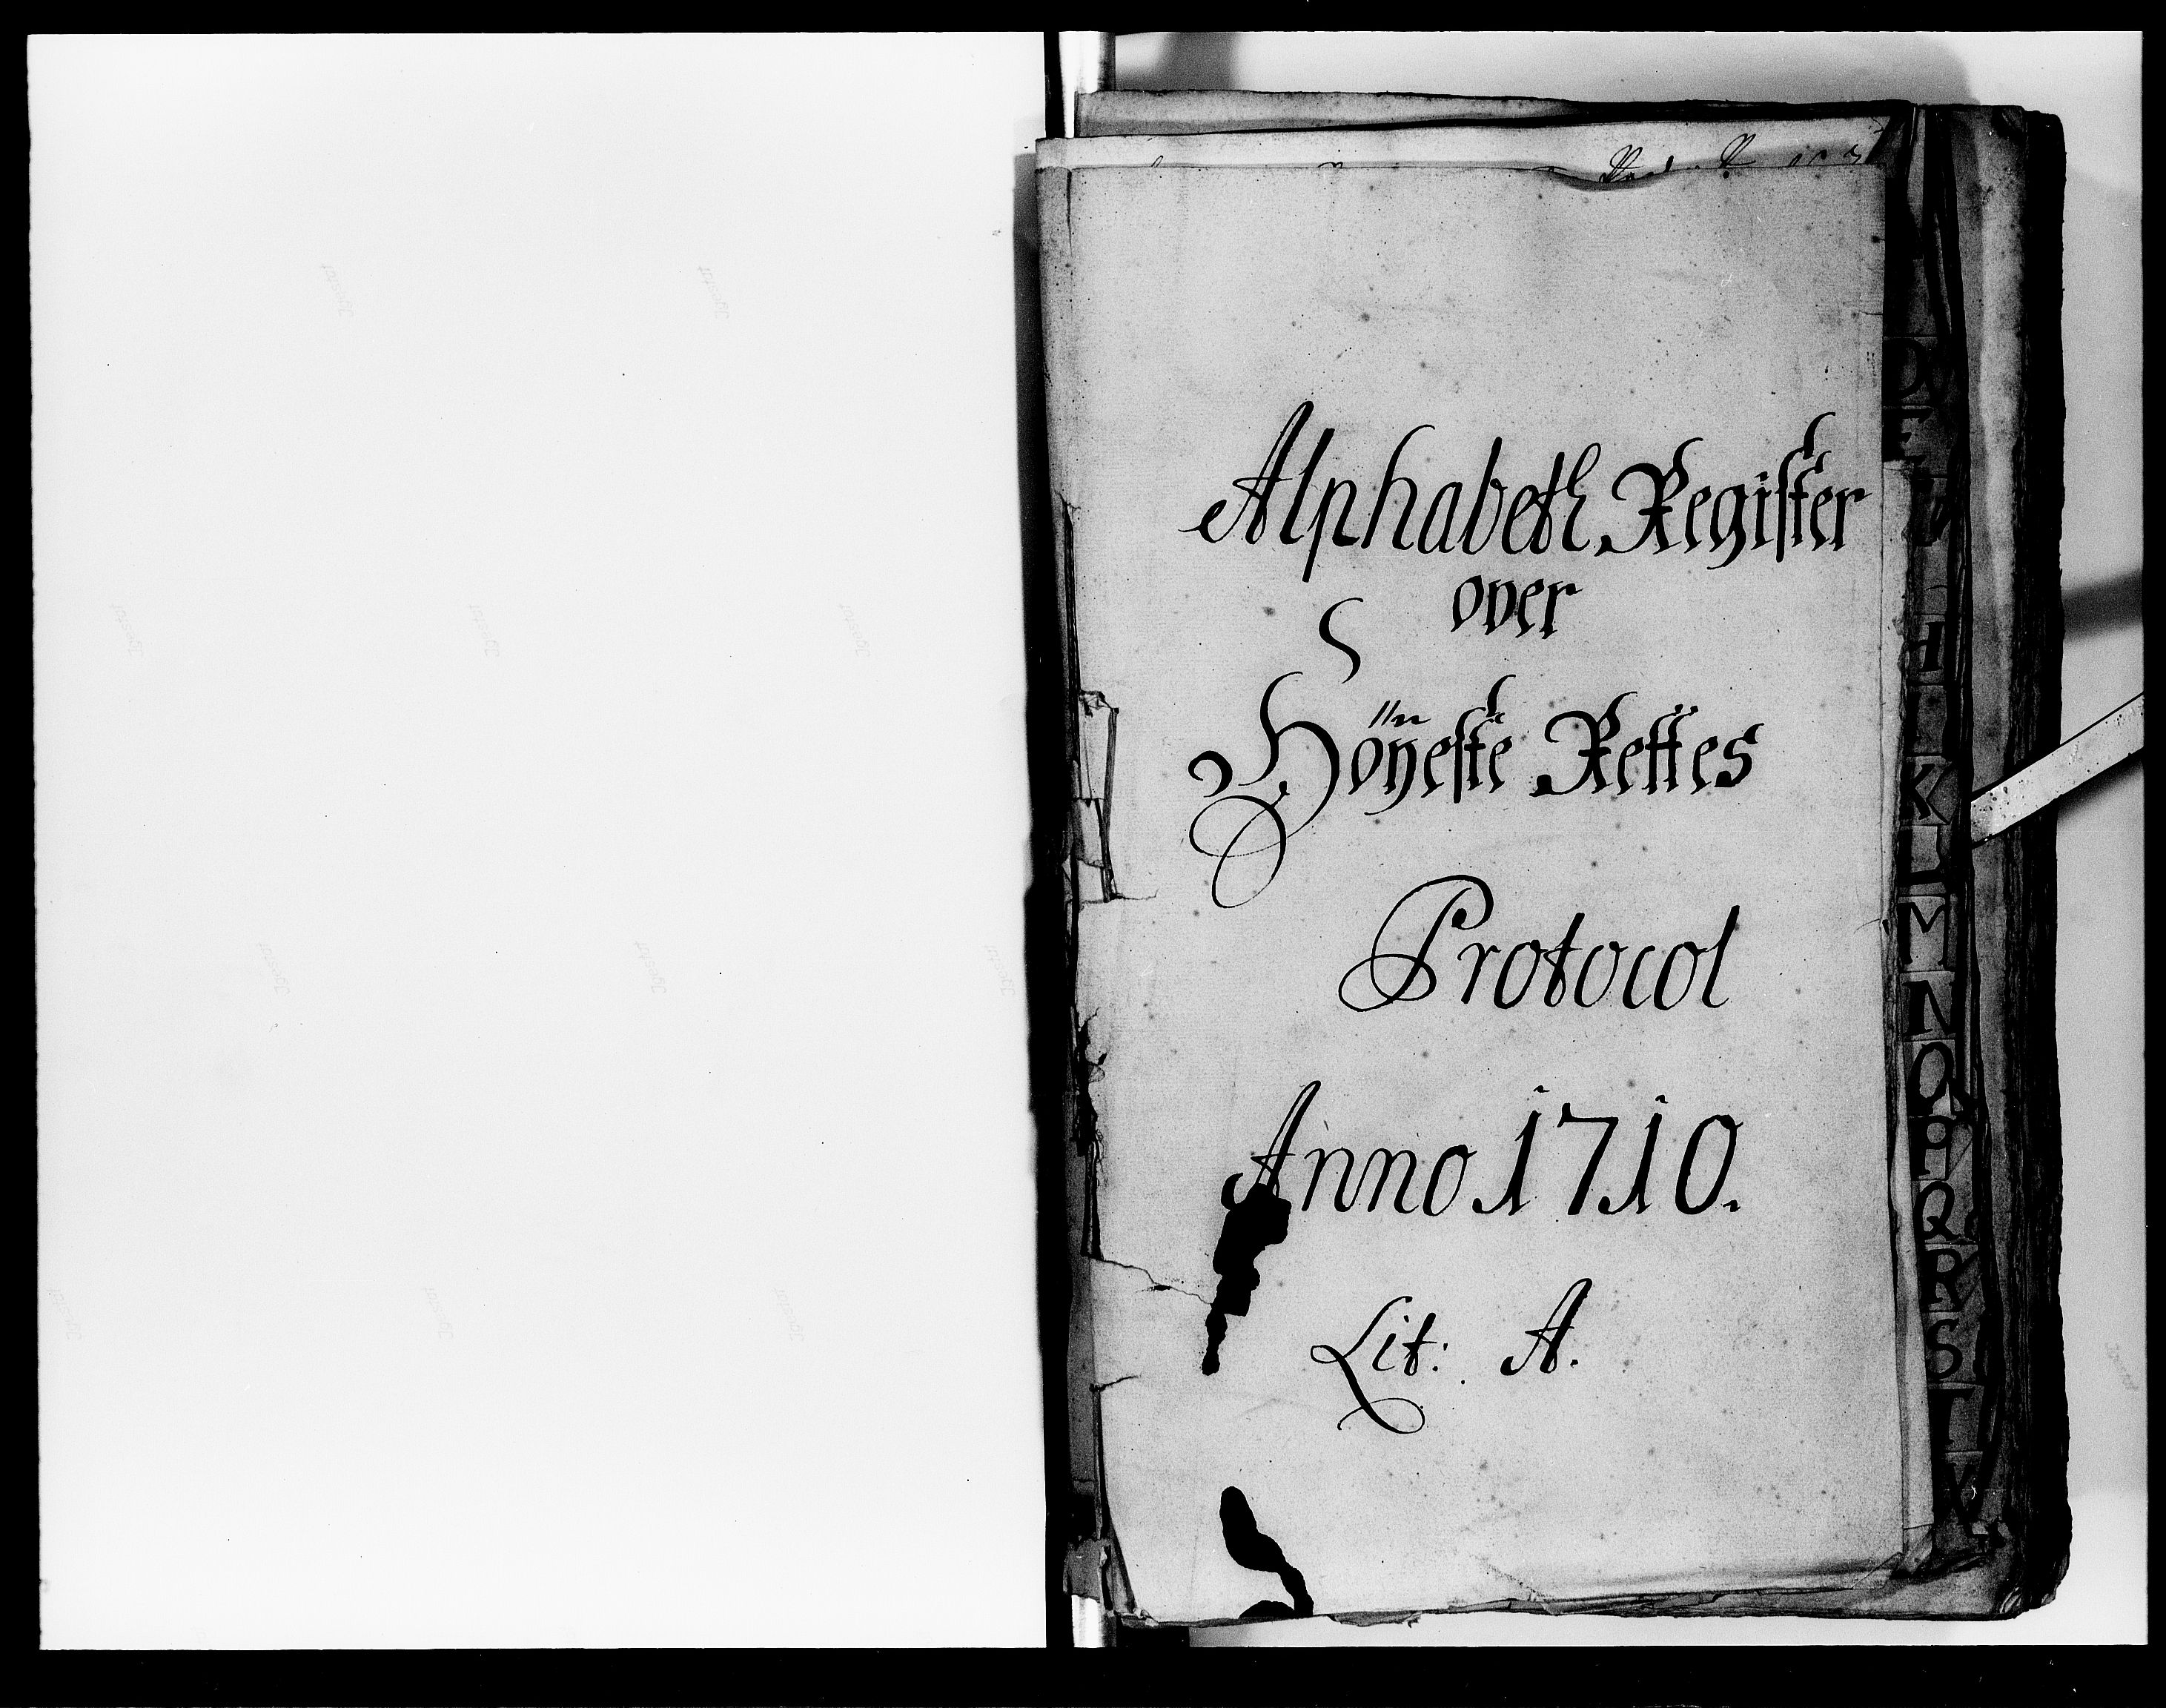 Alphabeth Register
over
Höÿeste Rettes
Protocol
Anno 1710.
Lit: A.
D
E
H
I
K
L
M
N
O
P
Q
R
S
T